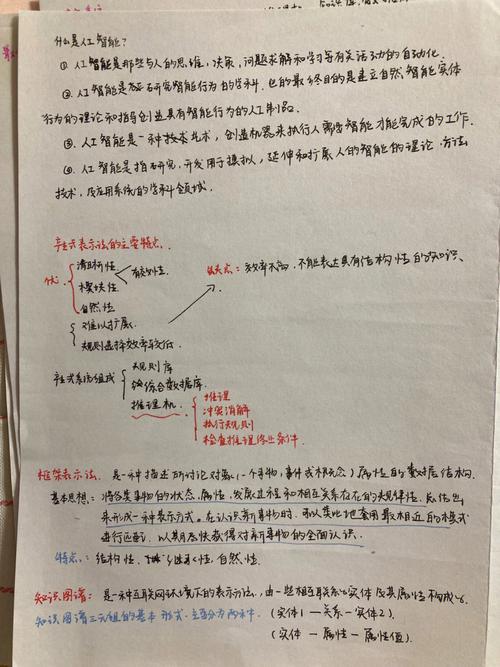 什么是人工智能?
① 人工智能是那些与人的思维,决策,问题求解和学习等有关活动的自动化.
② 人工智能是研究智能行为的学科. 它的最终目的是建立自然智能实体
行为的理论和指导创造具有智能行为的人工制品.
③ 人工智能是一种技术, 创造机器来执行人需要智能才能完成的工作.
④ 人工智能是指研究,开发用于模拟,延伸和扩展人的智能的理论.方法
技术,及应用系统的学科领域.
产生式表示法的主要特点.
优: 清晰性 有效性.
模块性
自然性
缺点: 效率不高.不能表达具有结构性的知识、
难以扩展.
规则选择效率较低.
产生式系统组成
规则库
综合数据库.
推理机.
推理
冲突消解
执行规则
检查推理终止条件.
框架表示法. 是一种描述所讨论对象(一个事物,事件或概念)属性的数据结构.
基本思想: 将各类事物的状态.属性.发展过程和相互关系存在的规律性.
来形成一种表示方式.在认识新事物时.可以类比地套用最相近的模式
进行匹配.以期尽快获得对新事物的全面认识.
特点: 结构性. 继承性. 自然性.
知识图谱: 是一种互联网环境下的表示方法.由一些相互联系的实体及其属性构成的.
知识图谱三元组的基本形式.主要分为两种. (实体1—关系—实体2).
(实体 — 属性 — 属性值).